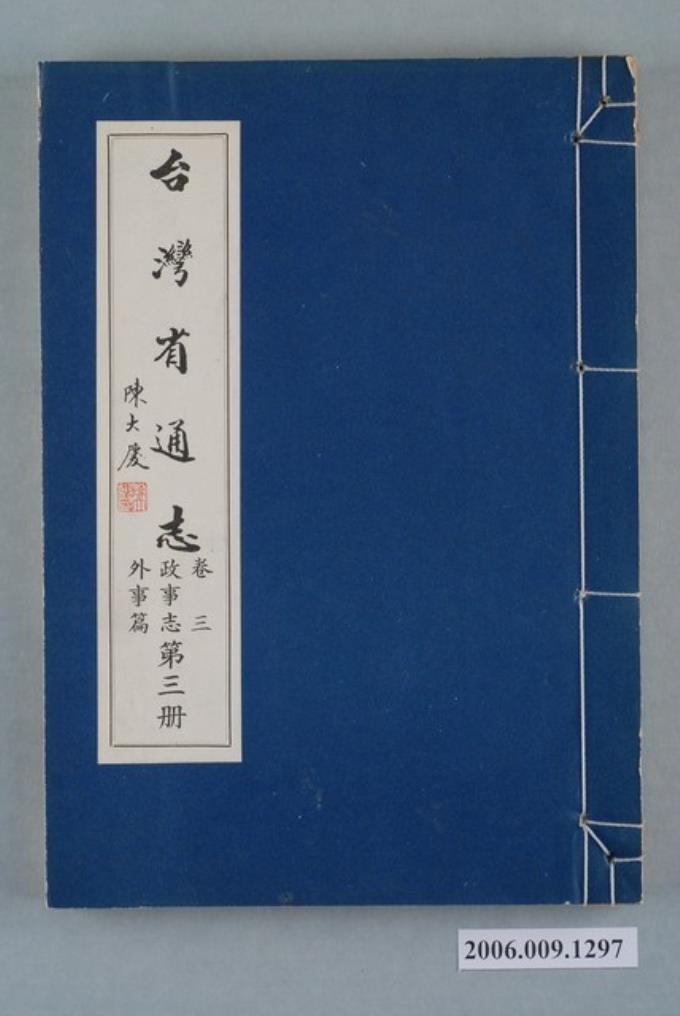 台灣省通志
卷三
政事志第三册
外事篇
陳大慶
2006.009.1297